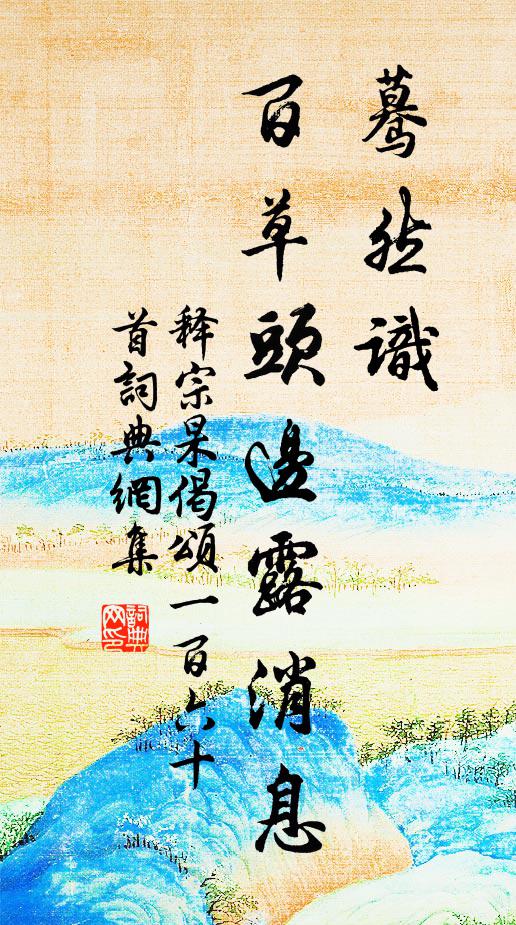 驀然識
百草頭邊露消息
释宗杲偈頌一百六十
首詞典網集
詞典网印